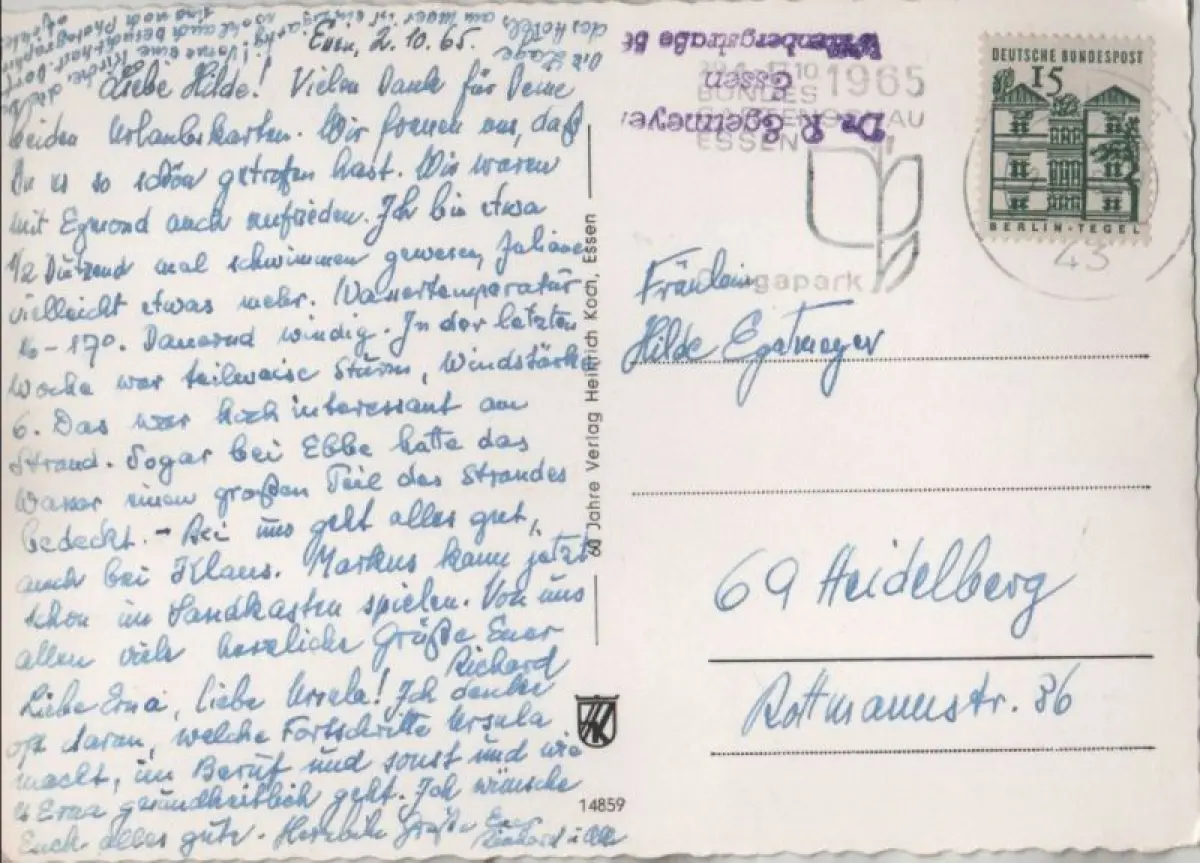 Essen, 2.10.65.
Liebe Hilde! Vielen Dank für Deine
beiden Urlaubskarten. Wir freuen uns, daß
Du es so schön getroffen hast. Wir waren
mit Egmond auch zufrieden. Ich bin etwa
1/2 Dutzend mal schwimmen gewesen, Juliane
vielleicht etwas mehr. Wassertemperatur
16-17°. Dauernd windig. In der letzten
Woche war teilweise Sturm, Windstärke
6. Das war hochinteressant am
Strand. Sogar bei Ebbe hatte das
Wasser einen großen Teil des Strandes
bedeckt. - Bei uns geht alles gut,
auch bei Klaus. Markus kann jetzt
schon im Sandkasten spielen. Von uns
allen viele herzliche Grüße Euer
Richard
Liebe Erna, liebe Ursula! Ich denke
oft daran, welche Fortschritte Ursula
macht, im Beruf und sonst und wie
es Erna gesundheitlich geht. Ich wünsche
Euch alles gute. Herzliche Grüße Euer
Die Lage
des Hotels am Meer ist
60 Jahre Verlag Heinrich Koch, Essen
HK
14859
Dr. R. Egetmeyer
Essen
1965
BUNDES
GARTENSCHAU
ESSEN
Grugapark
43
DEUTSCHE BUNDESPOST
15
BERLIN-TEGEL
Fräulein
Hilde Egetmeyer
69 Heidelberg
Rottmannstr. 36